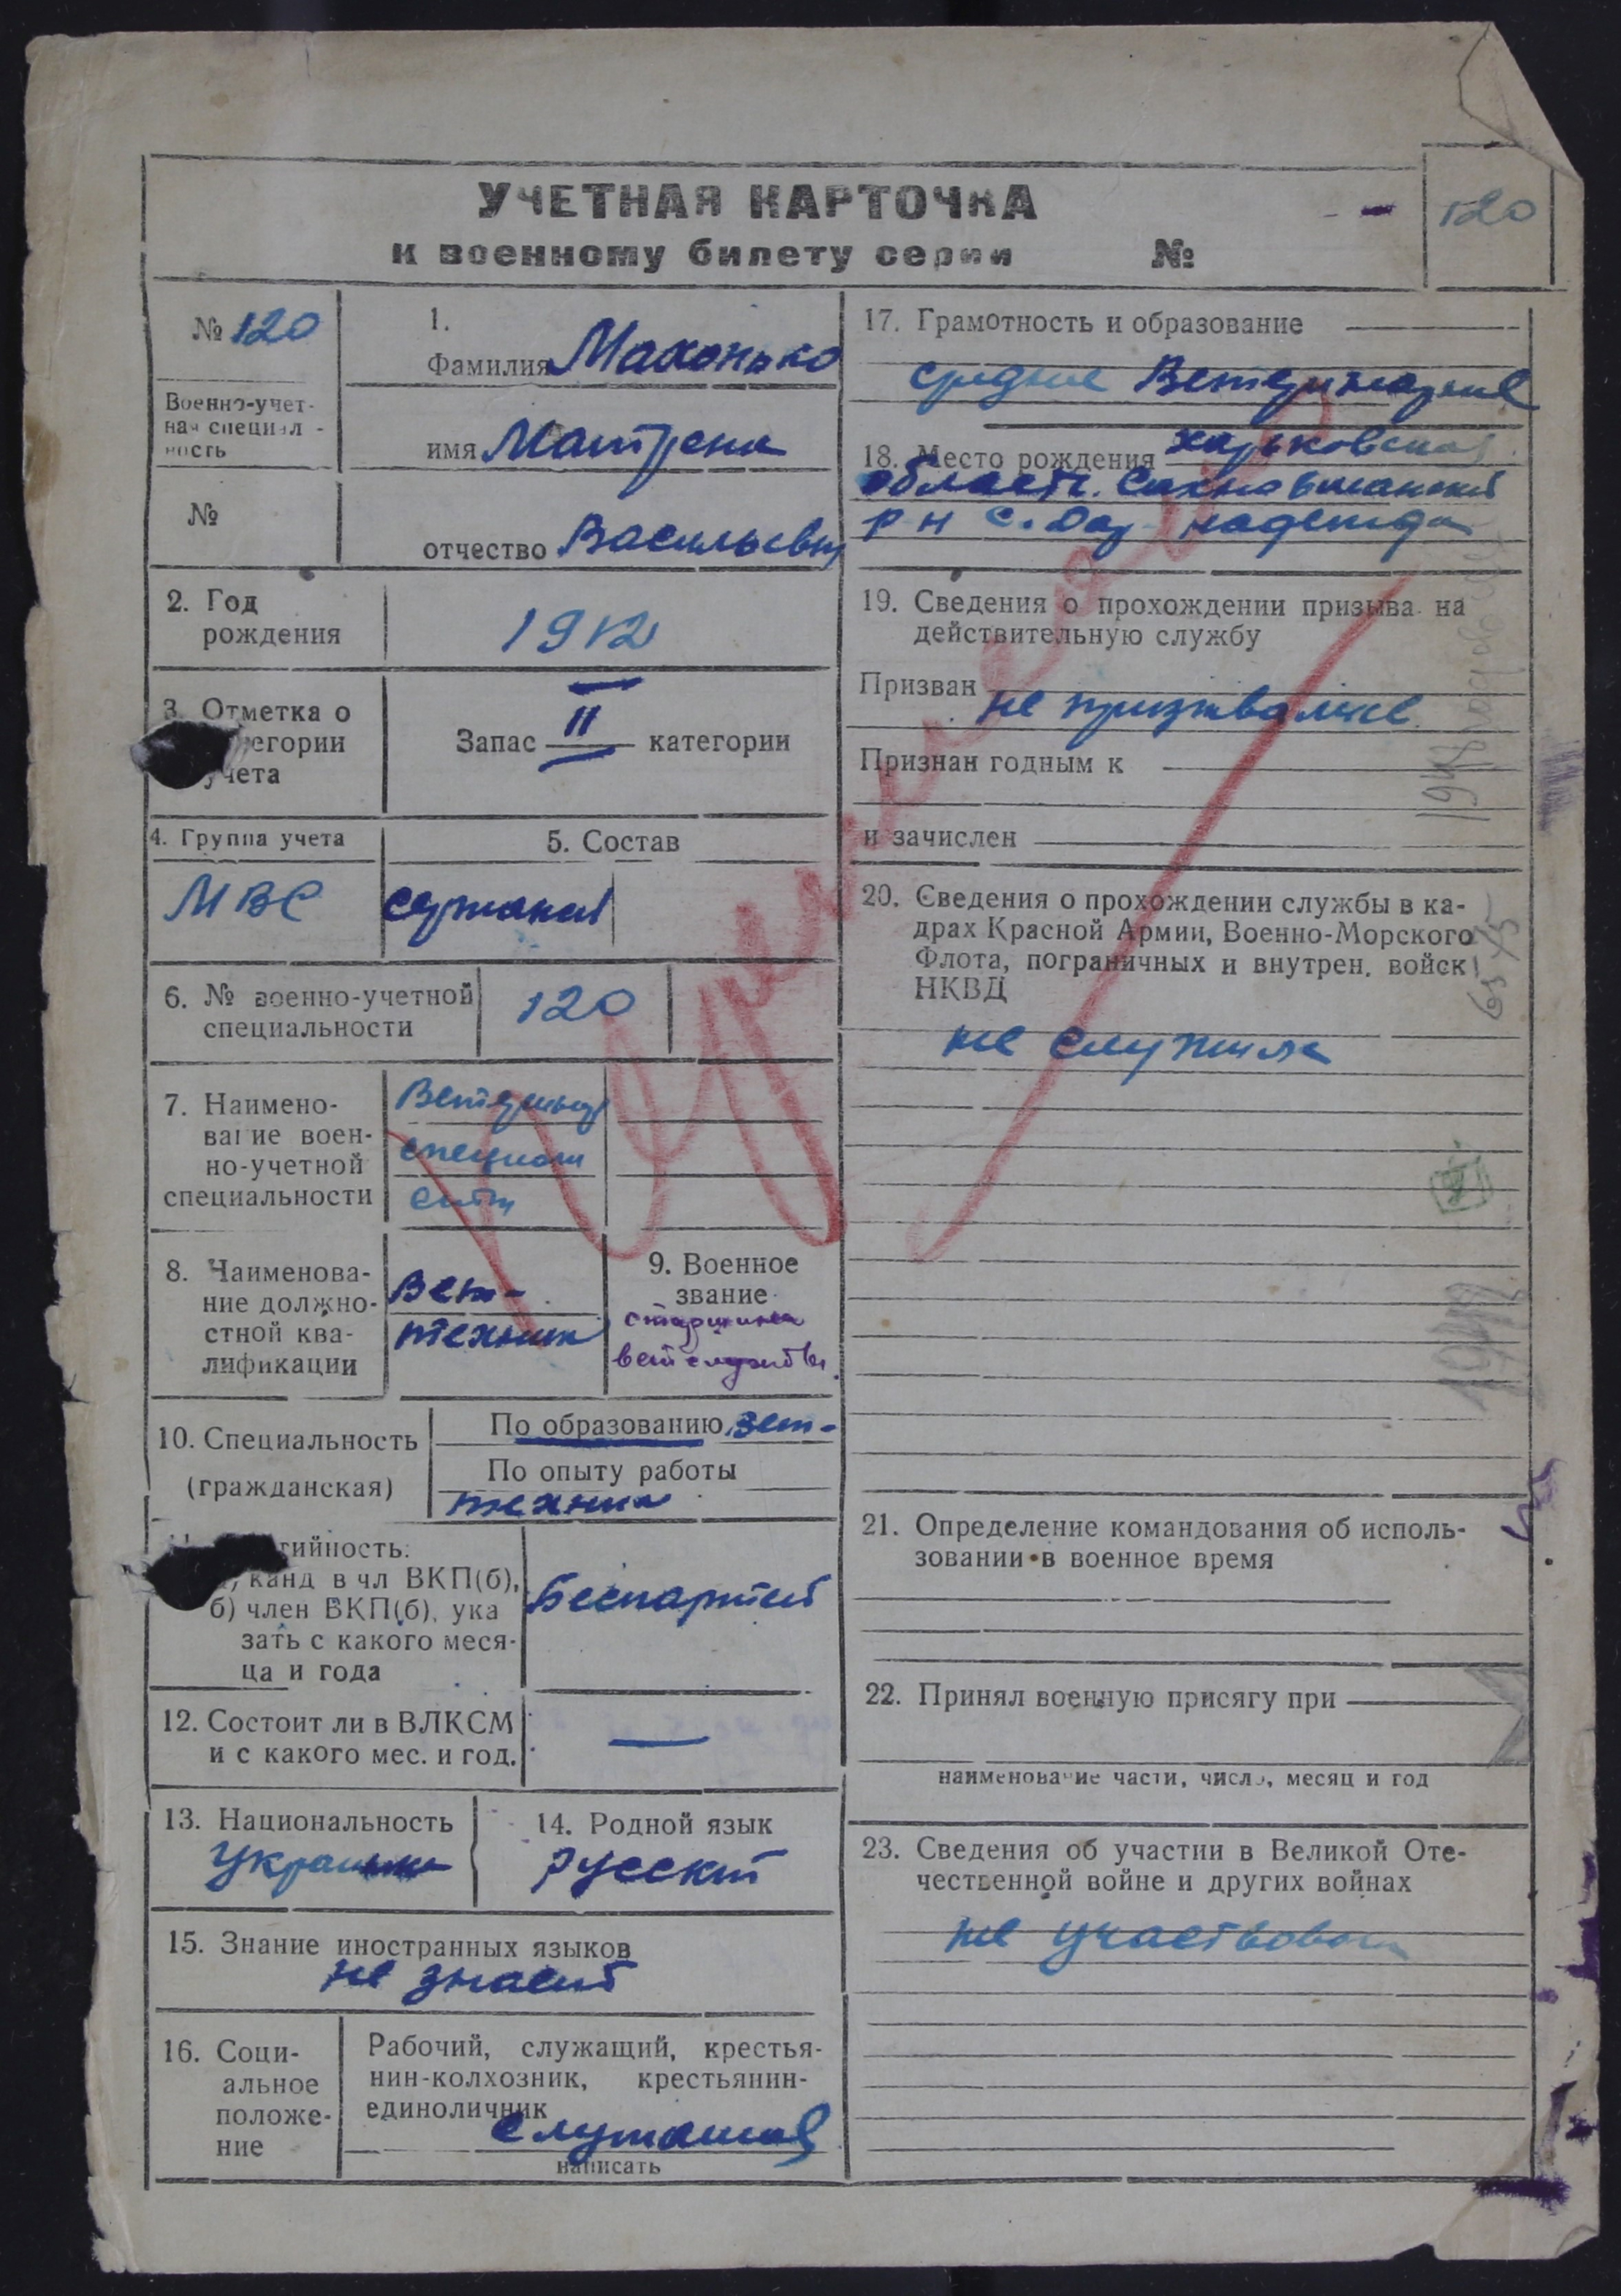 УЧЕТНАЯ КАРТОЧКА
к военному билету серии №
120
№ 120
Военно-учет-
ная специал-
ность
№
1.
Фамилия Махонько
имя Матрена
отчество Васильевн
2. Год
рождения
1912
3. Отметка о
егории
учета
Запас II категории
4. Группа учета
МВС
5. Состав
сержанст
6. № военно-учетной
специальности
120
7. Наимено-
вание воен-
но-учетной
специальности
8. Наименова-
ние должно-
стной ква-
лификации
Вет-
техник
9. Военное
звание
старшина
ветслужбы
10. Специальность
(гражданская)
По образованию вет-
По опыту работы
техник
тийность:
а) канд в чл ВКП(б),
б) член ВКП(б), ука
зать с какого меся-
ца и года
Беспартий
12. Состоит ли в ВЛКСМ
и с какого мес. и год.
—
13. Национальность
Украинка
14. Родной язык
Русский
15. Знание иностранных языков
не знает
16. Соци-
альное
положе-
ние
Рабочий, служащий, крестья-
нин-колхозник, крестьянин-
единоличник
служащая
написать
17. Грамотность и образование
среднее Ветеринарное
18. Место рождения Харьковская
область. Сахновщанский
р-н с.
19. Сведения о прохождении призыва на
действительную службу
Призван
не призвалась
Признан годным к
и зачислен
20. Сведения о прохождении службы в ка-
драх Красной Армии, Военно-Морского
Флота, пограничных и внутрен. войск
НКВД
не служила
21. Определение командования об исполь-
зовании в военное время
22. Принял военную присягу при
наименование части, число, месяц и год
23. Сведения об участии в Великой Оте-
чественной войне и других войнах
не участвовала